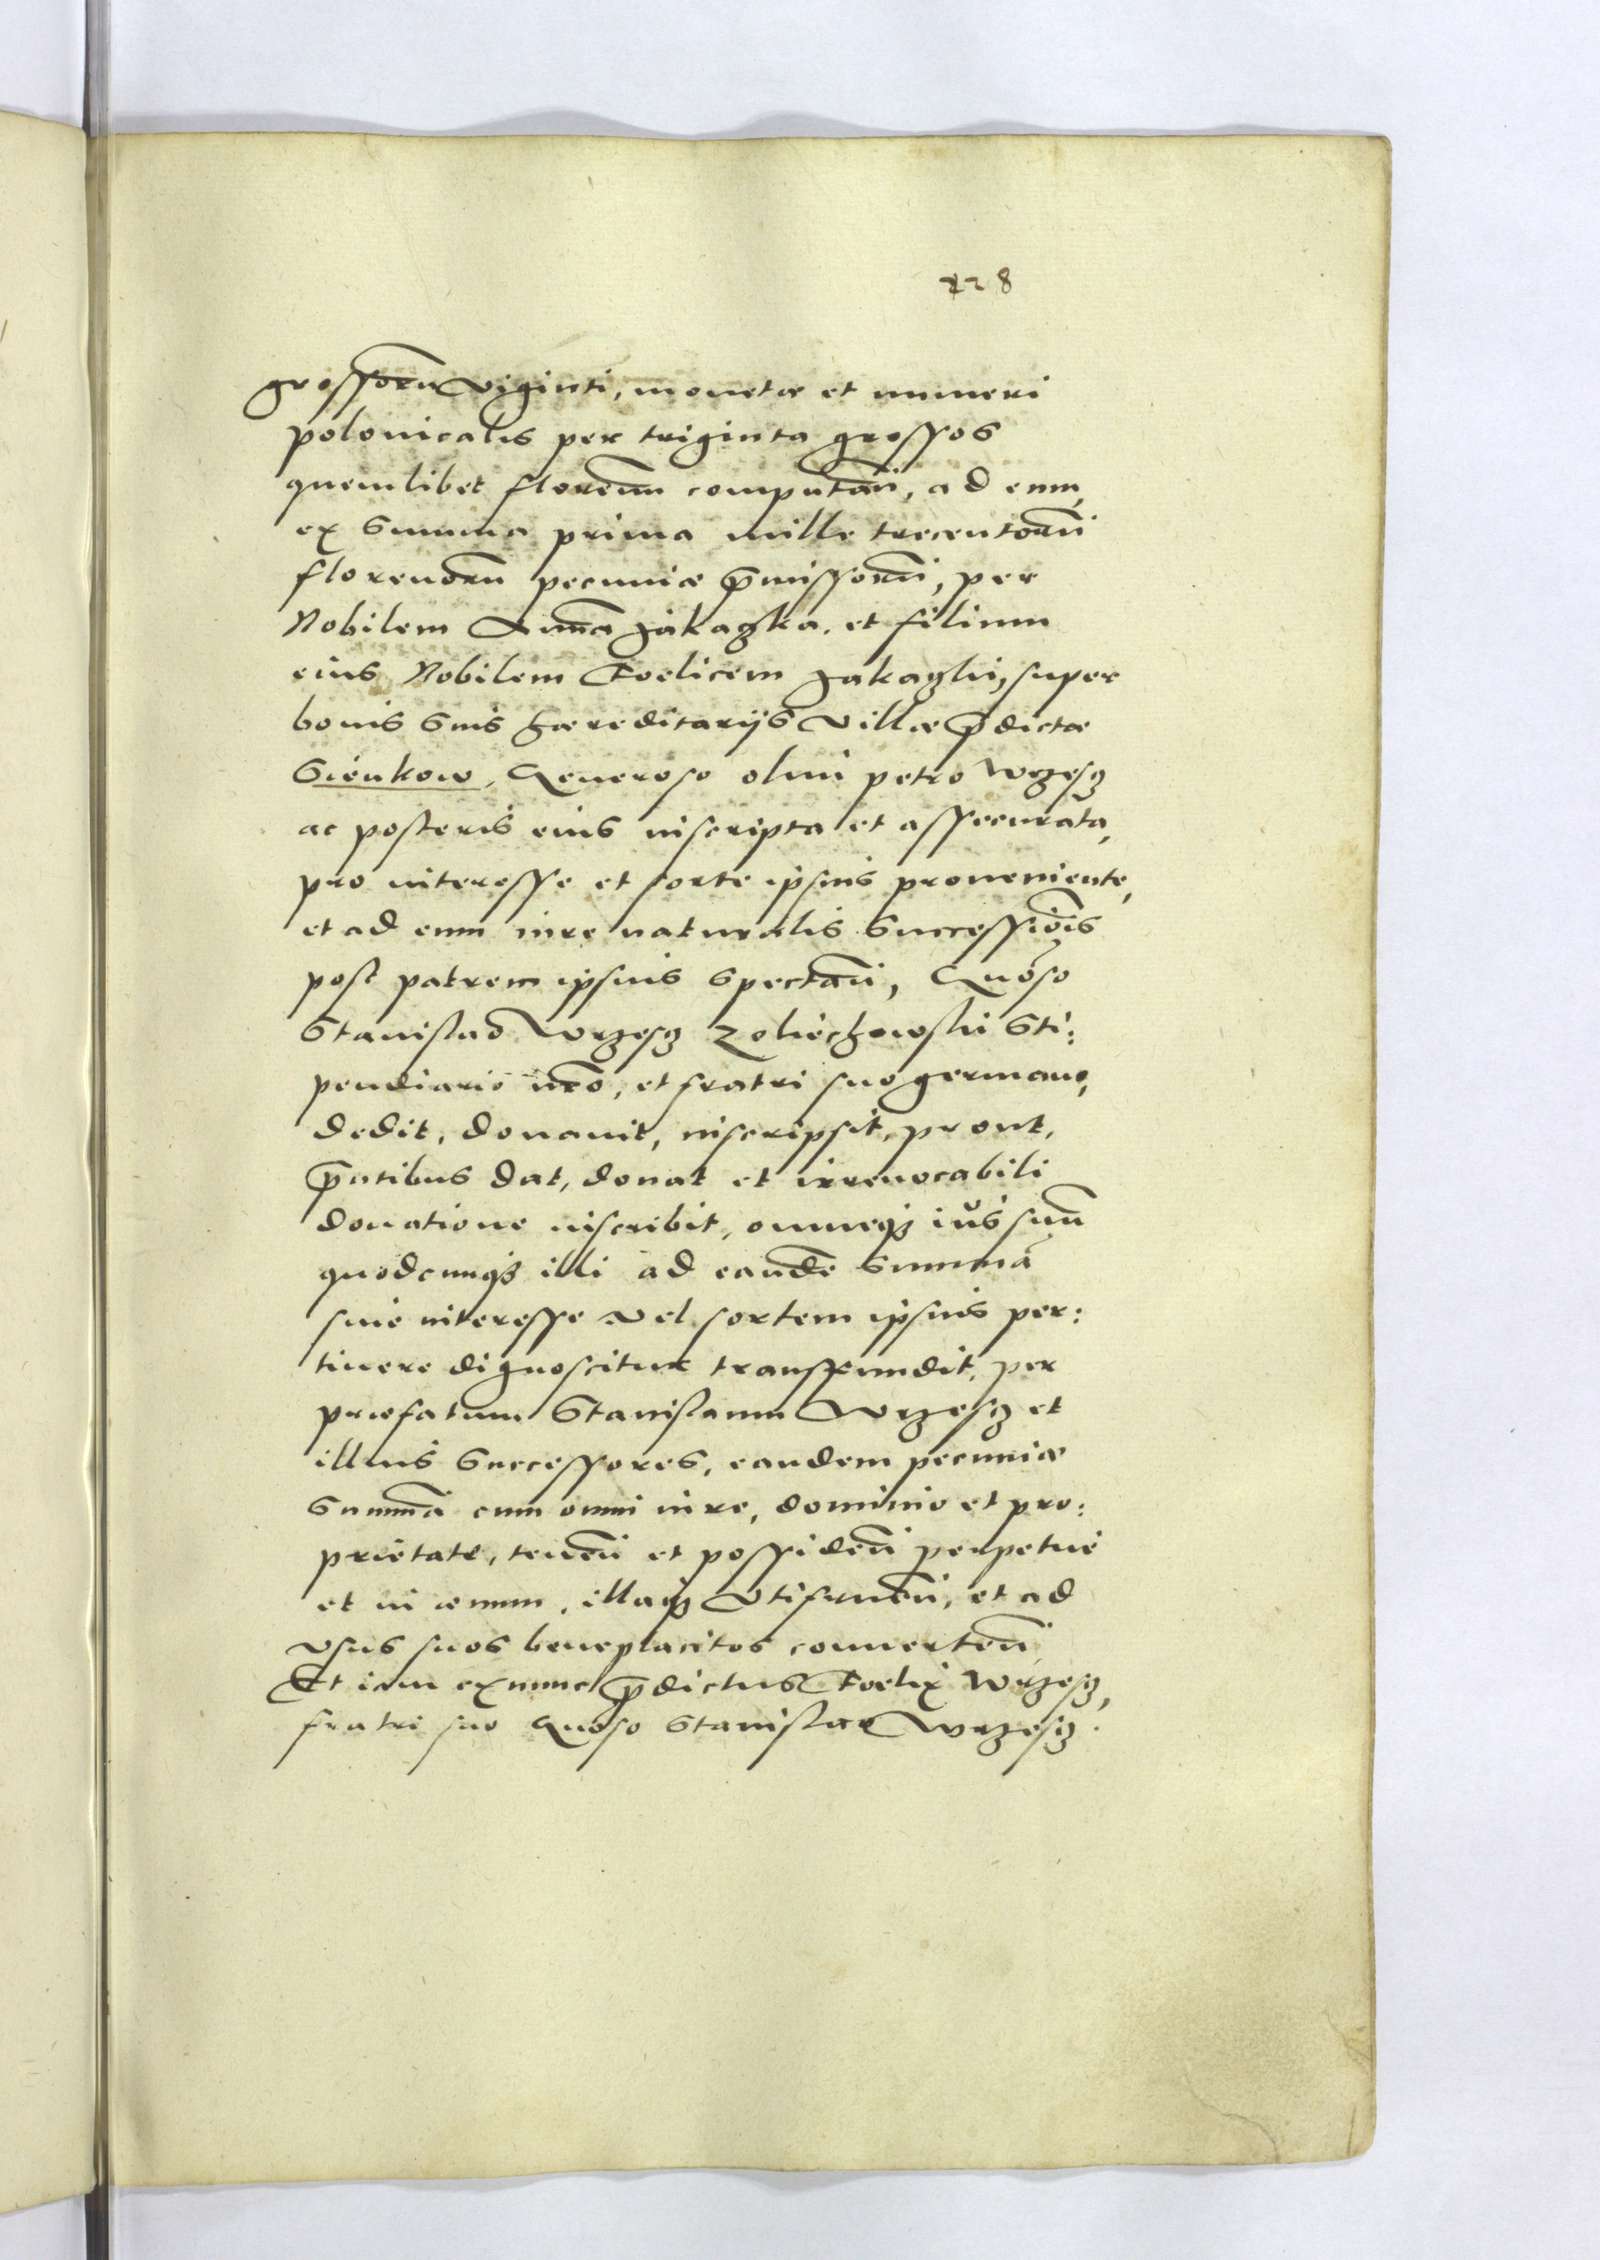 228
grossorū viginti, monetæ et numeri
polonicalis per triginta grossos
quemlibet florenū computañ, ad eum,
ex summa prima mille trecentorū
florenorū pecuniæ p̄missorū, per
Nobilem Annā et filium
eius Nobilem Foelicem super
bonis suis hæreditarijs villæ p̄dictæ
Sienkow, Generoso olim petro Wrzesz
ac posteris eius inscripta et assecurata,
pro interesse et sorte ipsius proueniente,
et ad eum iure naturalis successiōis
post patrem ipsius spectañ, Gnōso
Stanislao Wrzesz Zoliechowski Sti:
pendiario nr̄o, et fratri suo germano,
dedit, donauit, inscripsit, prout,
p̄ntibus dat, donat et irreuocabili
donatione inscribit, omneqȝ ius suū
quodcunqȝ illi ad eandē summā
siue interesse vel sortem ipsius per:
tinere dignoscitur transfundit, per
præfatum Stanislaum Wrzesz et
illius successores, eandem pecuniæ
summā cum omni iure, dominio et pro:
prietate, teneñ et possideñ perpetue
et in æuum, illaqȝ vtifrueñ, et ad
vsus suos beneplacitos conuerteñ
Et iam exnunc p̄dictus Foelix Wrzesz,
fratri suo Gnōso Stanislao Wrzesz.